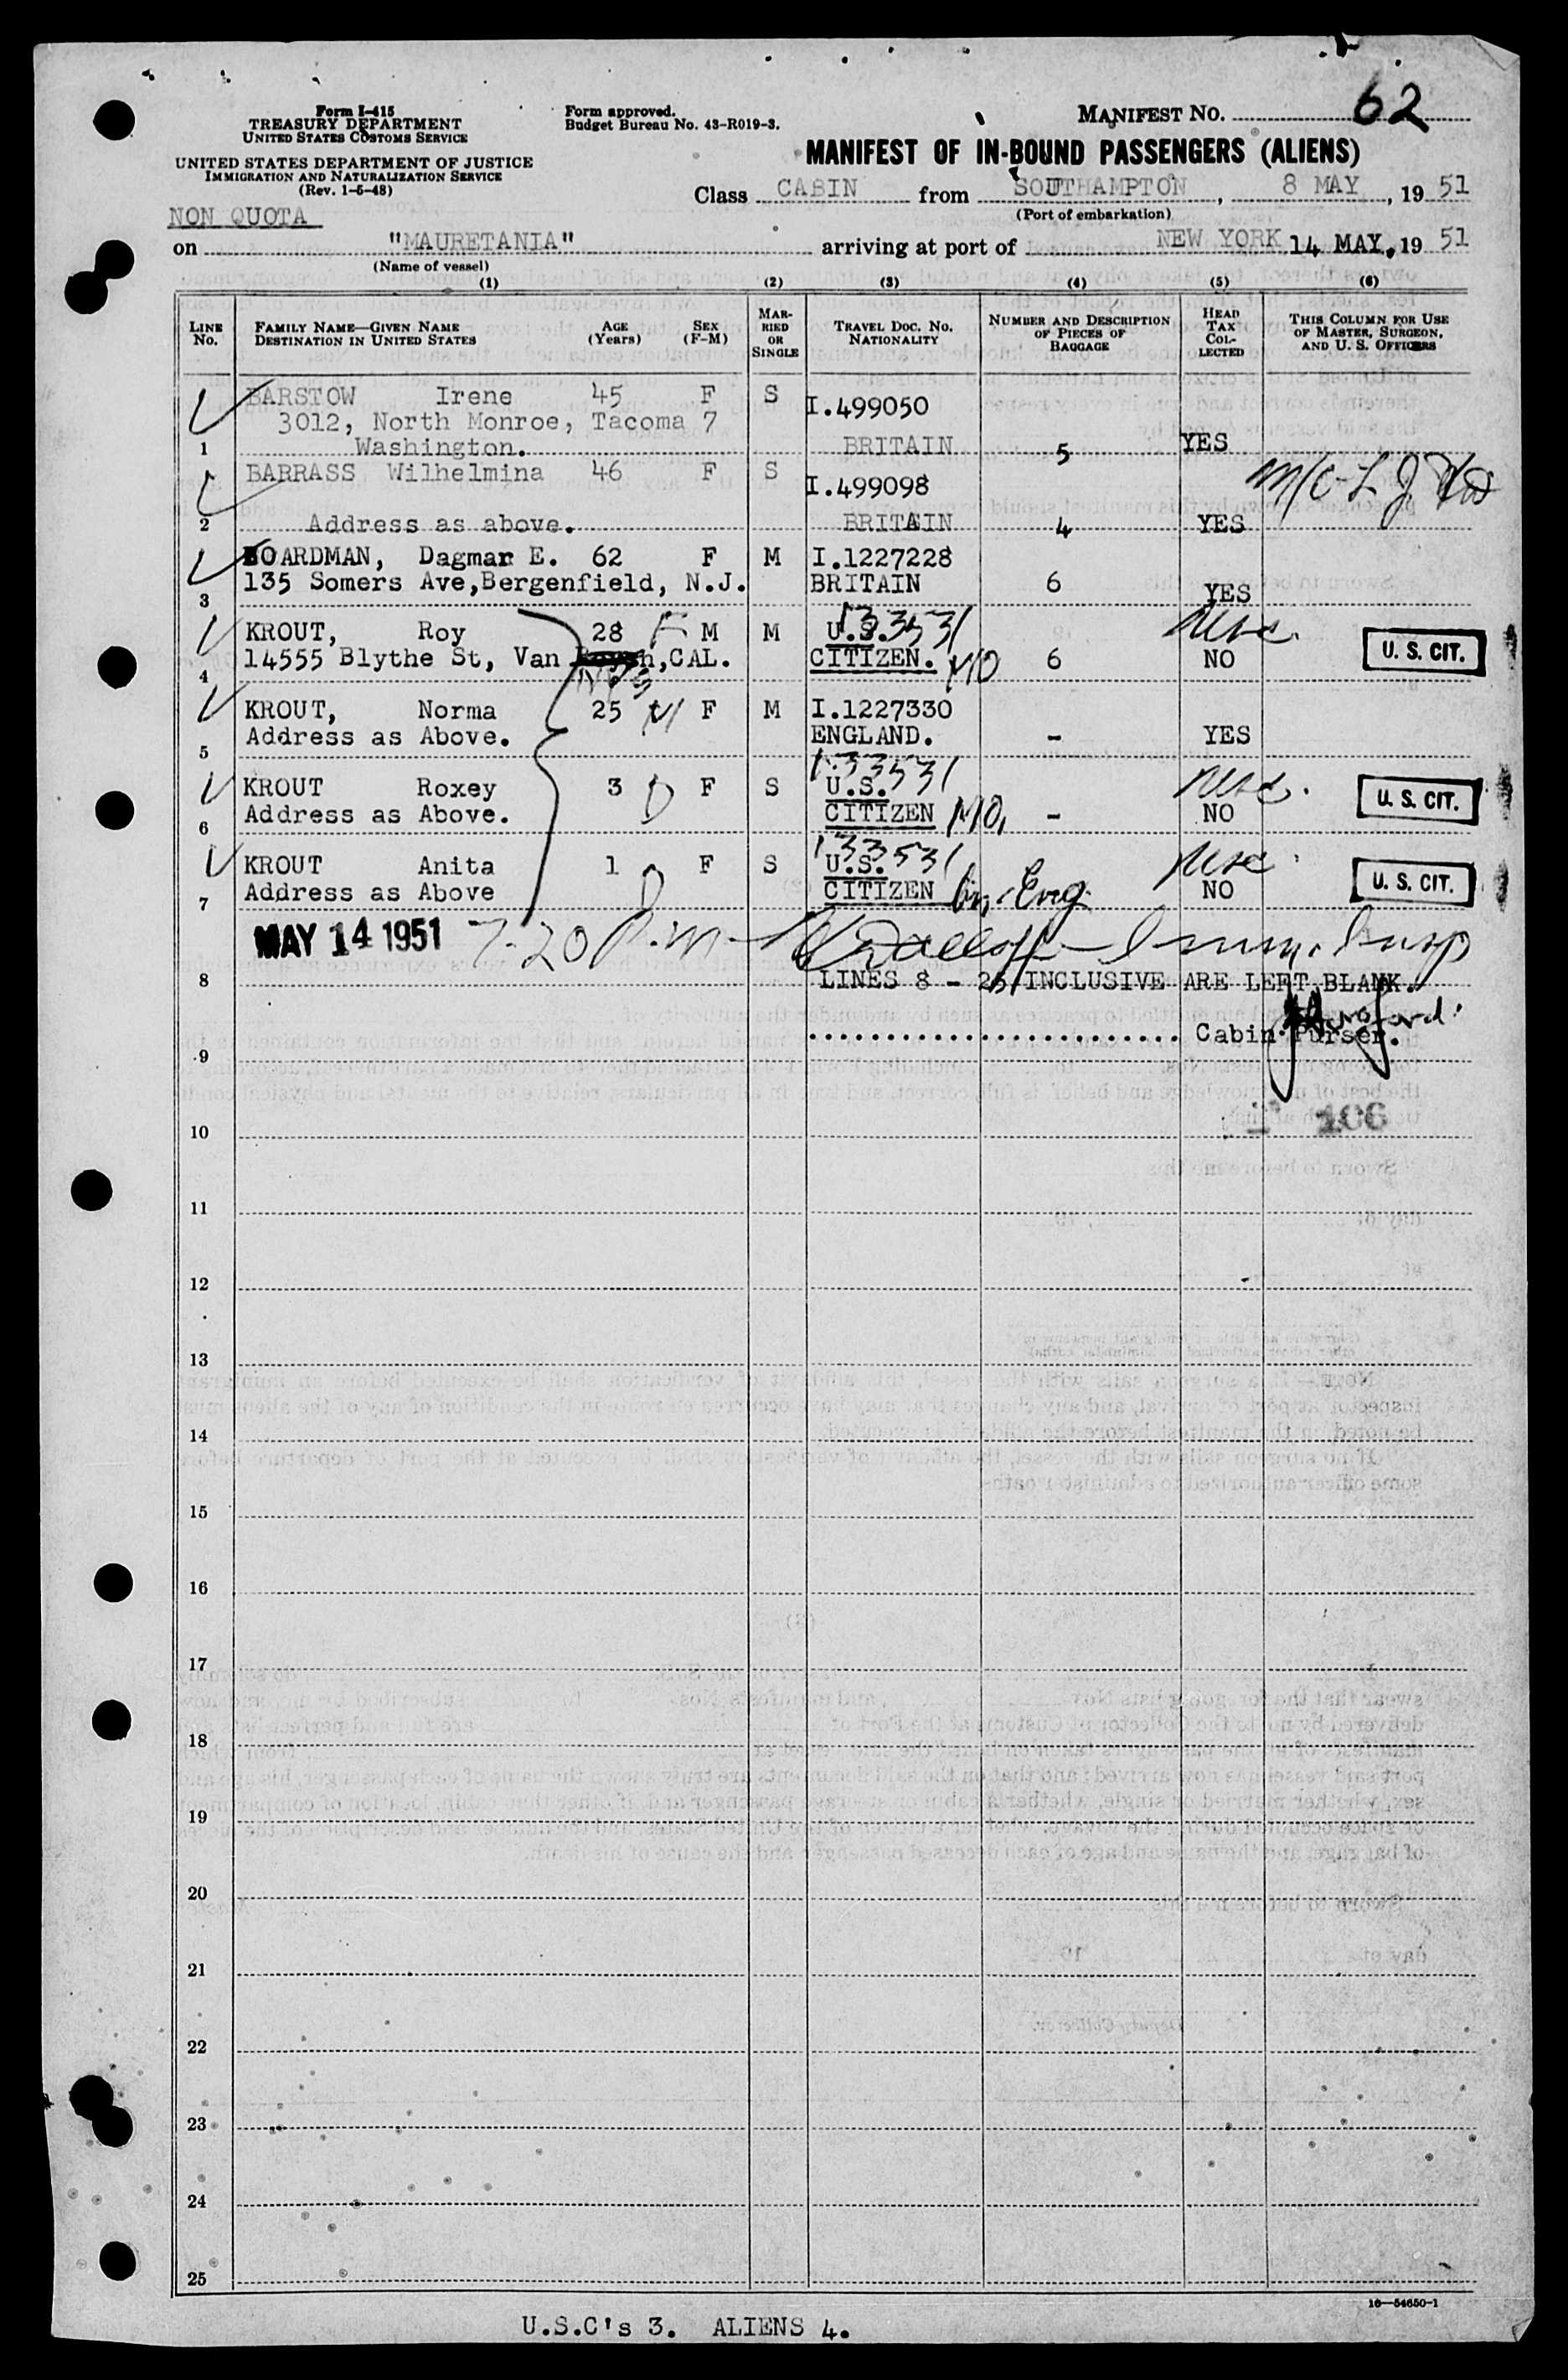 Form I-415
TREASURY DEPARTMENT
UNITED STATES CUSTOMS SERVICE
UNITED STATES DEPARTMENT OF JUSTICE
IMMIGRATION AND NATURALIZATION SERVICE
(Rev. 1-5-48)
Form approved.
Budget Bureau No. 43-R019-3.
MANIFEST NO. 62
MANIFEST OF IN-BOUND PASSENGERS (ALIENS)
Class CABIN from SOUTHAMPTON, 8 MAY, 19 51
(Port of embarkation)
NON QUOTA
on "MAURETANIA" arriving at port of NEW YORK 14 MAY, 19 51
(Name of vessel)
(1) (2) (3) (4) (5) (6)
LINE No. FAMILY NAME—GIVEN NAME DESTINATION IN UNITED STATES AGE (Years) SEX (F-M) MARRIED OR SINGLE TRAVEL DOC. NO. NATIONALITY NUMBER AND DESCRIPTION OF PIECES OF BAGGAGE HEAD TAX COLLECTED THIS COLUMN FOR USE OF MASTER, SURGEON, AND U. S. OFFICERS
BARSTOW Irene 45 F S I.499050
3012, North Monroe, Tacoma 7
1 Washington. BRITAIN 5 YES
BARRASS Wilhelmina 46 F S I.499098
2 Address as above. BRITAIN 4 YES
BOARDMAN, Dagmar E. 62 F M I.1227228
3 135 Somers Ave,Bergenfield, N.J. BRITAIN 6 YES
KROUT, Roy 28 F M M U.S. 133531
4 14555 Blythe St, Van Nuys, CAL. CITIZEN. MO 6 NO U. S. CIT.
KROUT, Norma 25 M F M I.1227330
5 Address as Above. ENGLAND. - YES
KROUT Roxey 3 D F S U.S. 133531
6 Address as Above. CITIZEN MO, - NO U. S. CIT.
KROUT Anita 1 D F S U.S. 133531
7 Address as Above CITIZEN Eng. NO U. S. CIT.
MAY 14 1951 7-20 P.m. Imm. Insp
8 LINES 8 - 25 INCLUSIVE ARE LEFT BLANK.
9 Cabin Purser.
10 106
11
12
13
14
15
16
17
18
19
20
21
22
23
24
25
16—54650-1
U.S.C's 3. ALIENS 4.